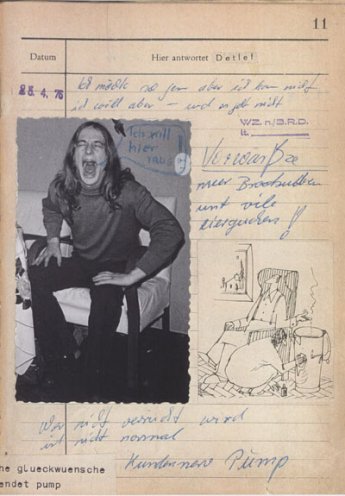 11
Datum
Hier antwortet Detlef
25.4.76
Ich möchte so gern aber ich kann nicht
ich will aber – und es geht nicht
WZ n/B.R.D.
lt.
Ich will
hier
raus
meer
und viele
Wer nicht verrückt wird
ist nicht normal
Kundennerv Pump
he glueckwuensche
endet pump